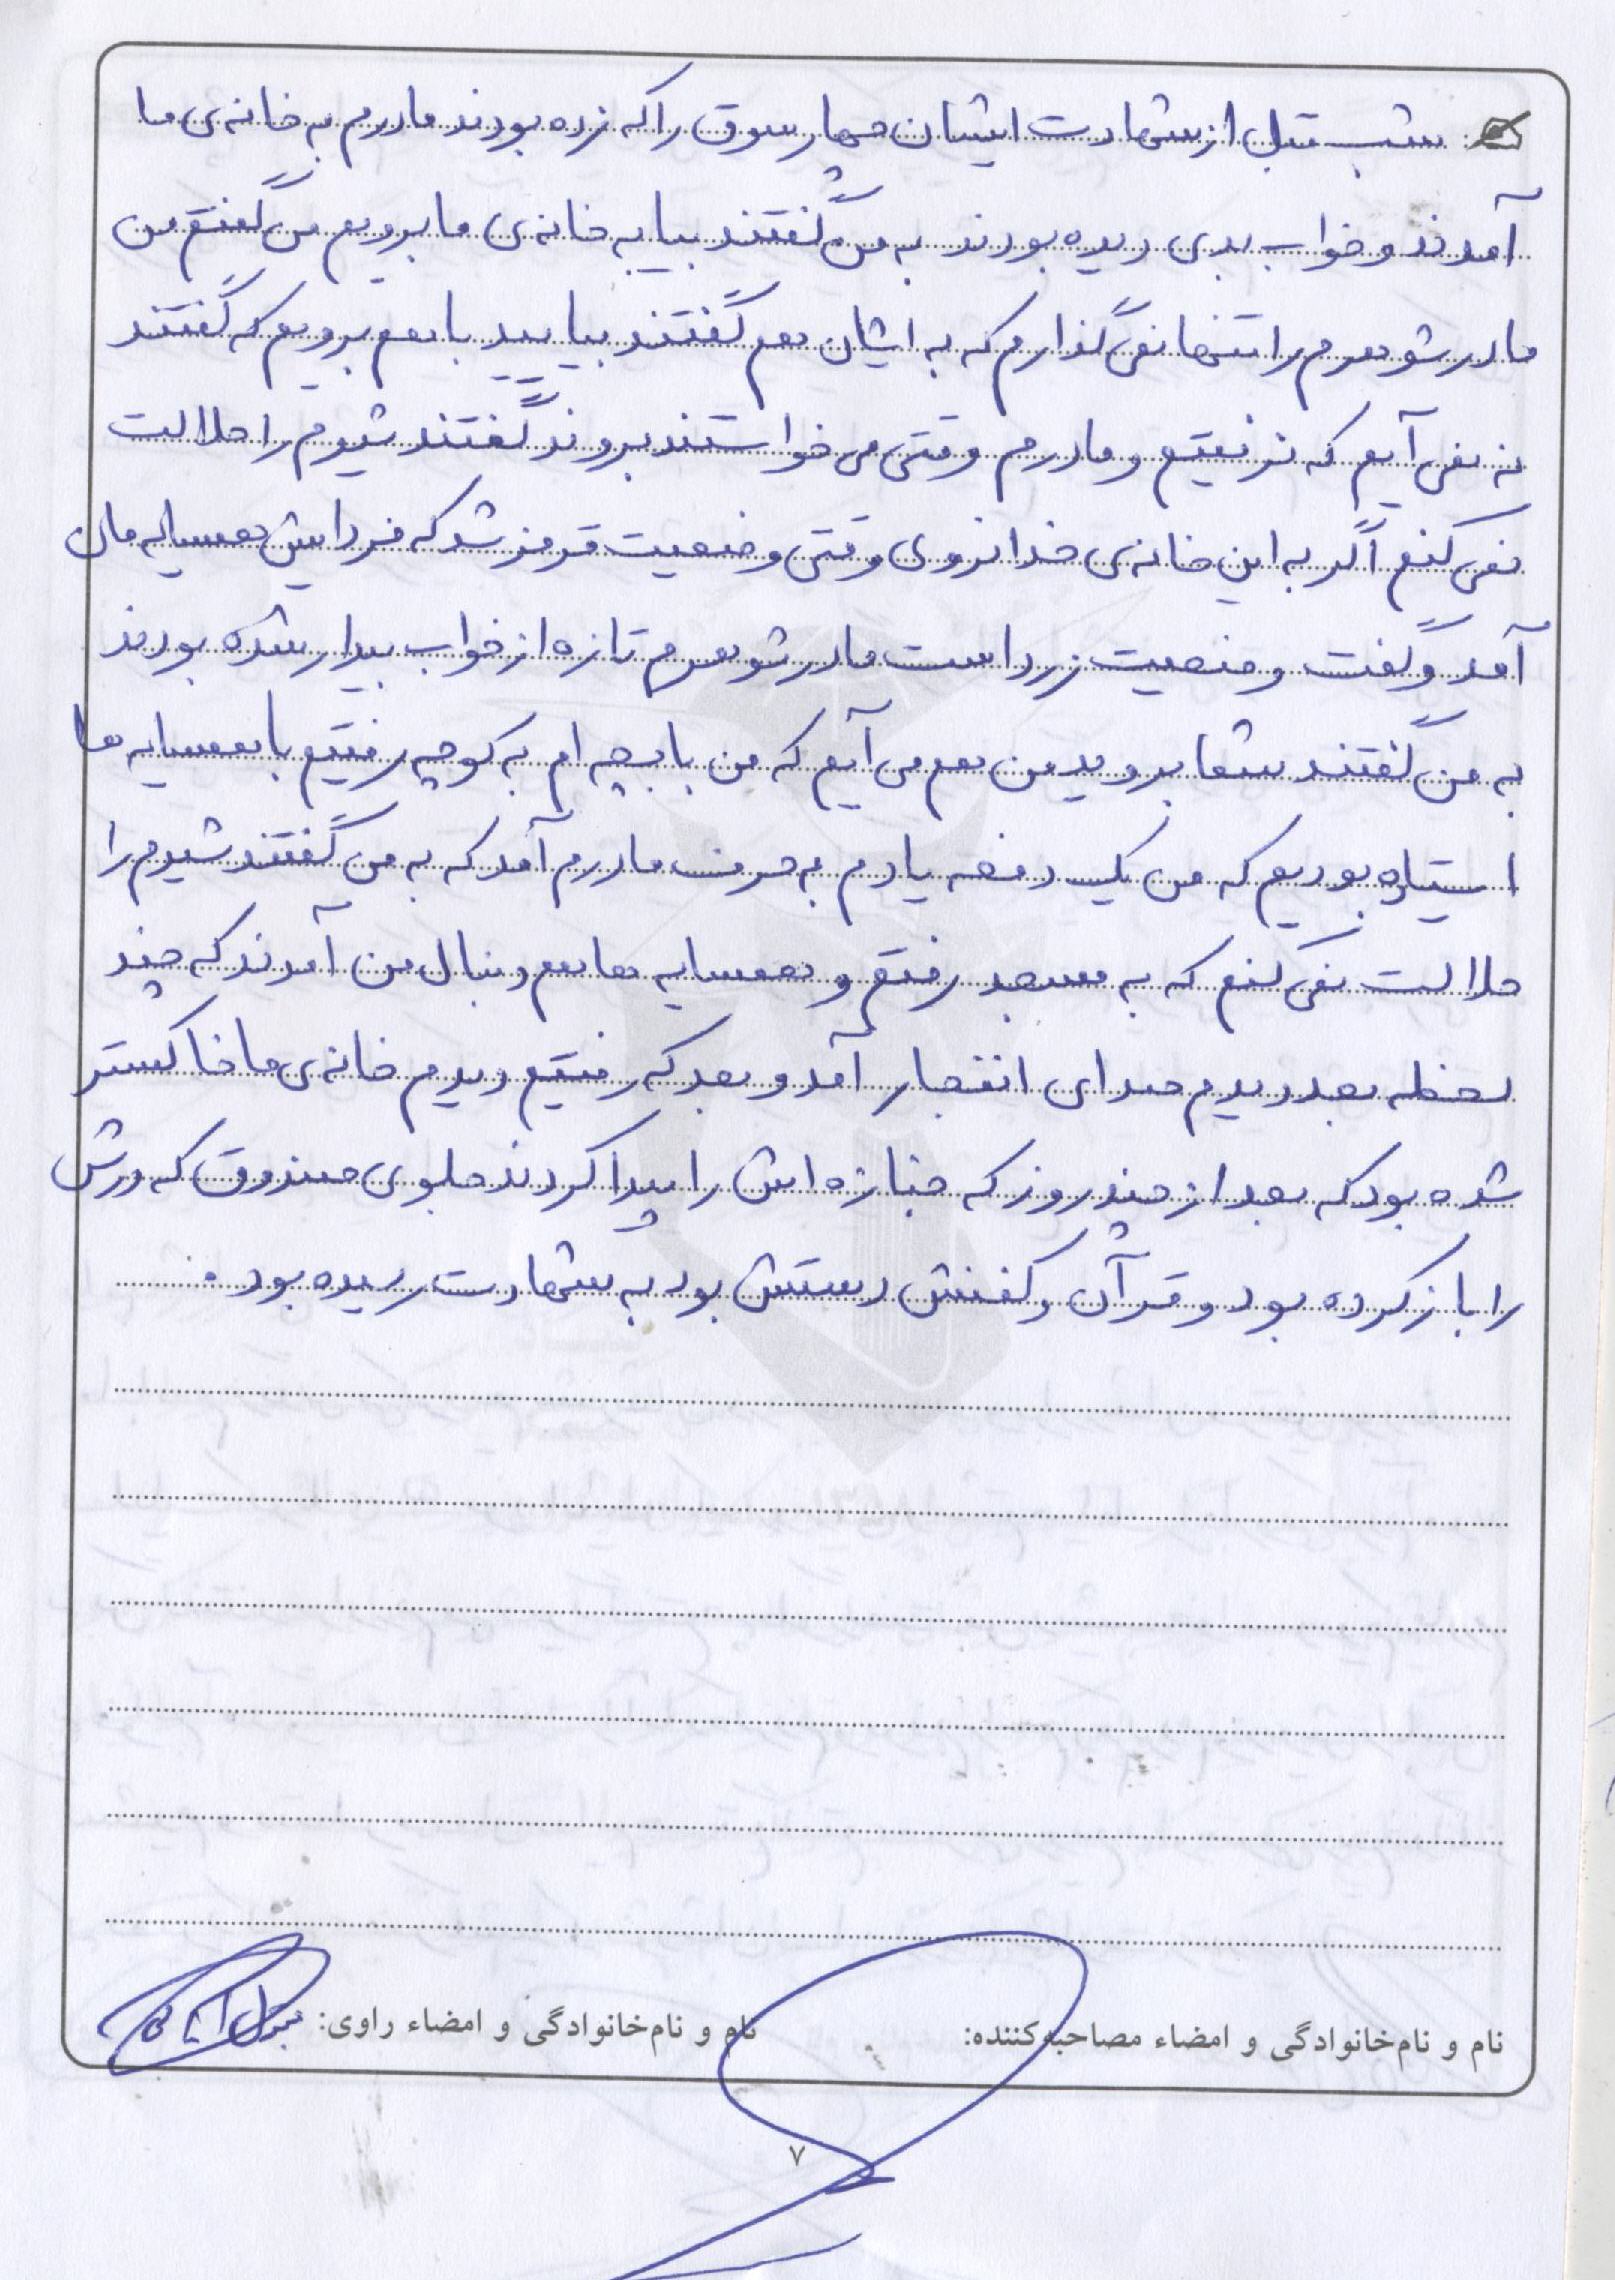 شب قبل از شهادت ایشان چهارسوق را که زده بودند مادرم به خانه‌ی ما
آمدند و خواب بدی دیده بودند به من گفتند بیا به خانه‌ی ما برویم من گفتم من
مادر شوهرم را تنها نمی گذارم که به ایشان هم گفتند بیایید با هم برویم که گفتند
نه نمی آیم که نرفتیم و مادرم وقتی می خواستند بروند گفتند شیرم را حلالت
نمی کنم اگر به این خانه‌ی خدا نروی وقتی وضعیت قرمز شد که فردایش همسایه مان
آمد و گفت وضعیت زرد است مادر شوهرم تازه از خواب بیدار شده بودند
به من گفتند شما بروید من هم می آیم که من با بچه ام به کوچه رفتیم با همسایه ها
استاده بودیم که من یک دفعه یادم به حرف مادرم آمد که به من گفتند شیرم را
حلالت نمی کنم که به مسجد رفتم و همسایه ها هم دنبال من آمدند که چند
لحظه بعد دیدم صدای انفجار آمد و بعد که رفتیم دیدم خانه‌ی ما خاکستر
شده بود که بعد از چند روز که جنازه اش را پیدا کردند جلوی صندوق که درش
را باز کرده بود و قرآن و کفنش دستش بود به شهادت رسیده بود.
نام و نام‌خانوادگی و امضاء مصاحبه‌کننده: نام و نام‌خانوادگی و امضاء راوی:
۷